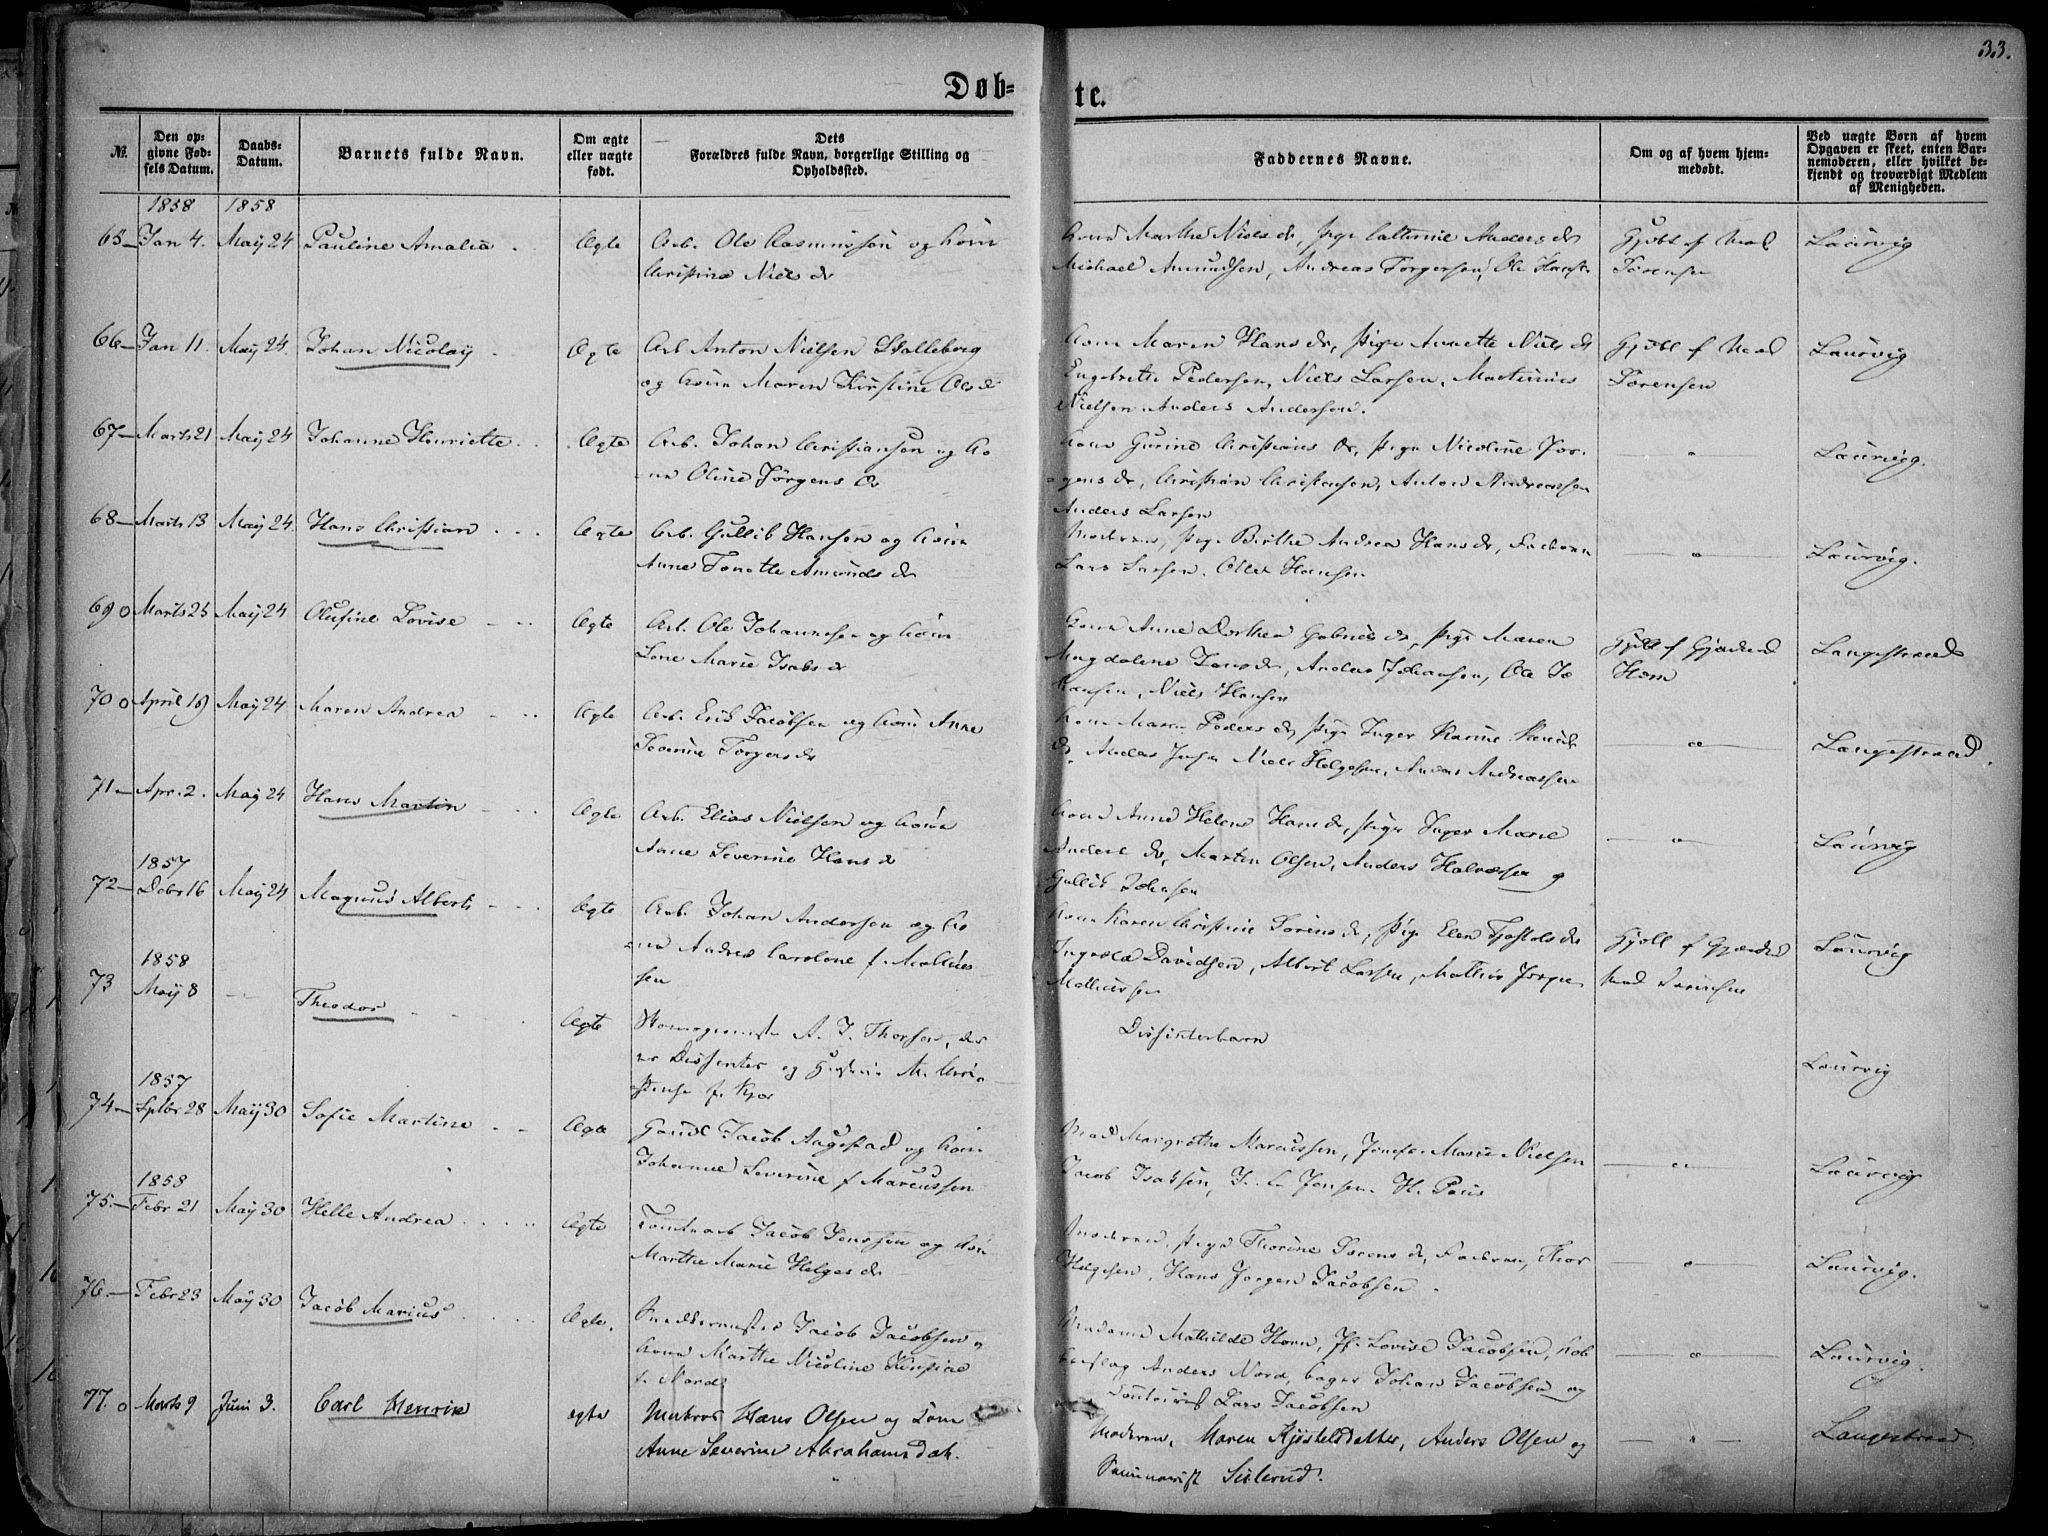 33.
Døb-
te.
№.
Den op-
givne Fød-
sels Datum.
Daabs-
Datum.
Barnets fulde Navn.
Om ægte
eller uægte
født.
Dets
Forældres fulde Navn, borgerlige Stilling og
Opholdssted.
Faddernes Navne.
Om og af hvem hjem-
medøbt.
Ved uægte Børn af hvem
Opgaven er skeet, enten Bar-
nemoderen, eller hvilket be-
kjendt og troværdigt Medlem
af Menigheden.
1858 1858
65 Jan 4. May 24 Pauline Amalia Ægte Arb. Ole Rasmussøn og Kone
Christine Niels dr
Kone Marthe Niels dr, Pige Cathrine Anders dr
Michael Amundsen, Andreas Torgersen, Ole Hansen
Gjdbt af Mad
Sørensen
Laurvig
66 Jan 11. May 24. Johan Nicolay Ægte Arb Anton Nielsen Stalleborg
og Kone Maren Kirstine Ols dr
Kone Maren Hans dr, Pige Annette Niels dr
Engebrette Pedersen, Niels Larsen, Mathinius
Nielsen Anders Andersen.
Gjdbt af Mad
Sørensen
Laurvig
67 Marts 21 May 24 Johanne Henriette Ægte Arb. Johan Christiansen og Ko
ne Oline Jørgens dr
Kone Gurine Christians dr, Pige Nicoline Jør-
gens dr, Christian Christensen, Anton Andreassen
Anders Larsen
Laurvig.
68 Marts 13 May 24. Hans Christian Ægte Arb. Gullik Hansen og Kone
Anne Tonette Amunds dr
Moderen, Pige Birthe Andrea Hans dr, Faderen
Lars Larsen. Ole Hansen
Laurvig.
69 Marts 25 May 24 Olufine Lovise Ægte Arb. Ole Johannesen og Kone
Lene Marie Isaks dr
Kone Anne Dorthea Gabriels dr, Pige Maren
Magdalene Jans dr, Anders Johansen, Ole Jo
hansen, Niels Hansen
Gjdbt af Gjordmd
Horn
Langestrand
70 April 19 May 24 Maren Andrea Ægte Arb. Erik Jacobsen og Kone Anne
Severine Torgers dr
Kone Maren Peders dr, Pige Inger Karine Henrik
dr, Anders Jensen Niels Helgesen, Anders Andreassen
Langestrand.
71 Apr. 2. May 24 Hans Martin Ægte Arb. Elias Nielsen og Kone
Anne Severine Hans dr
Kone Anne Helene Hans dr, Pige Inger Marie
Anders dr, Martin Olsen, Anders Halvorsen og
Gullik Johnsen
Laurvig
1857
72 Debr 16 May 24 Magnus Albert Ægte Arb. Johan Andersen og Ko
ne Andrea Caroline f. Mathias
sen
Kone Karen Christine Sørens dr, Pige Elen Tjøstols dr
Ingvald Davidsen, Albert Larsen, Mathis Jørgen
Mathiassen
Gjdbt af Gjordmd
Mad Sørensen
Laurvig
1858
73 May 8 Theodor Ægte A. J. Thorsen, der
er Dissenter og Hustrue M. Chri-
stense f. Kjær
Dissenterbarn
Laurvig
1857
74 Sptbr 28 May 30 Sofie Martine Ægte Jacob Augestad og Kone
Johanne Severine f Marcussen
Mad Margrethe Marcussen, Jomfr Marie Nielsen
Jacob Isaksen, J. C Jensen. H. Paus
Laurvig
1858
75. Febr 21 May 30 Helle Andrea Ægte Tomtearb Jacob Jenssen og Kone
Marthe Marie Helges dr
Moderen, Pige Thorine Sørens dr, Faderen, Thor
Helgesen, Hans Jørgen Jacobsen.
Laurvig.
76. Febr 23 May 30 Jacob Marius Ægte. Snedkermester Jacob Jacobsen og
Kone Marthe Nicoline Kirstine
f. Nord
Madame Mathilde Horn, Jf. Lovise Jacobsen, Kob
berslag Anders Nord, bager Johan Jacobsen og
Lars Jacobsen
Laurvig.
77. Marts 9 Juni 3. Carl Henrik ægte Matros Hans Olsen og Kone
Anne Severine Abrahamsdatr.
Moderen, Maren Kjøstelsdatter, Anders Olsen og
Seminarist Seilerud.
Langestrand.